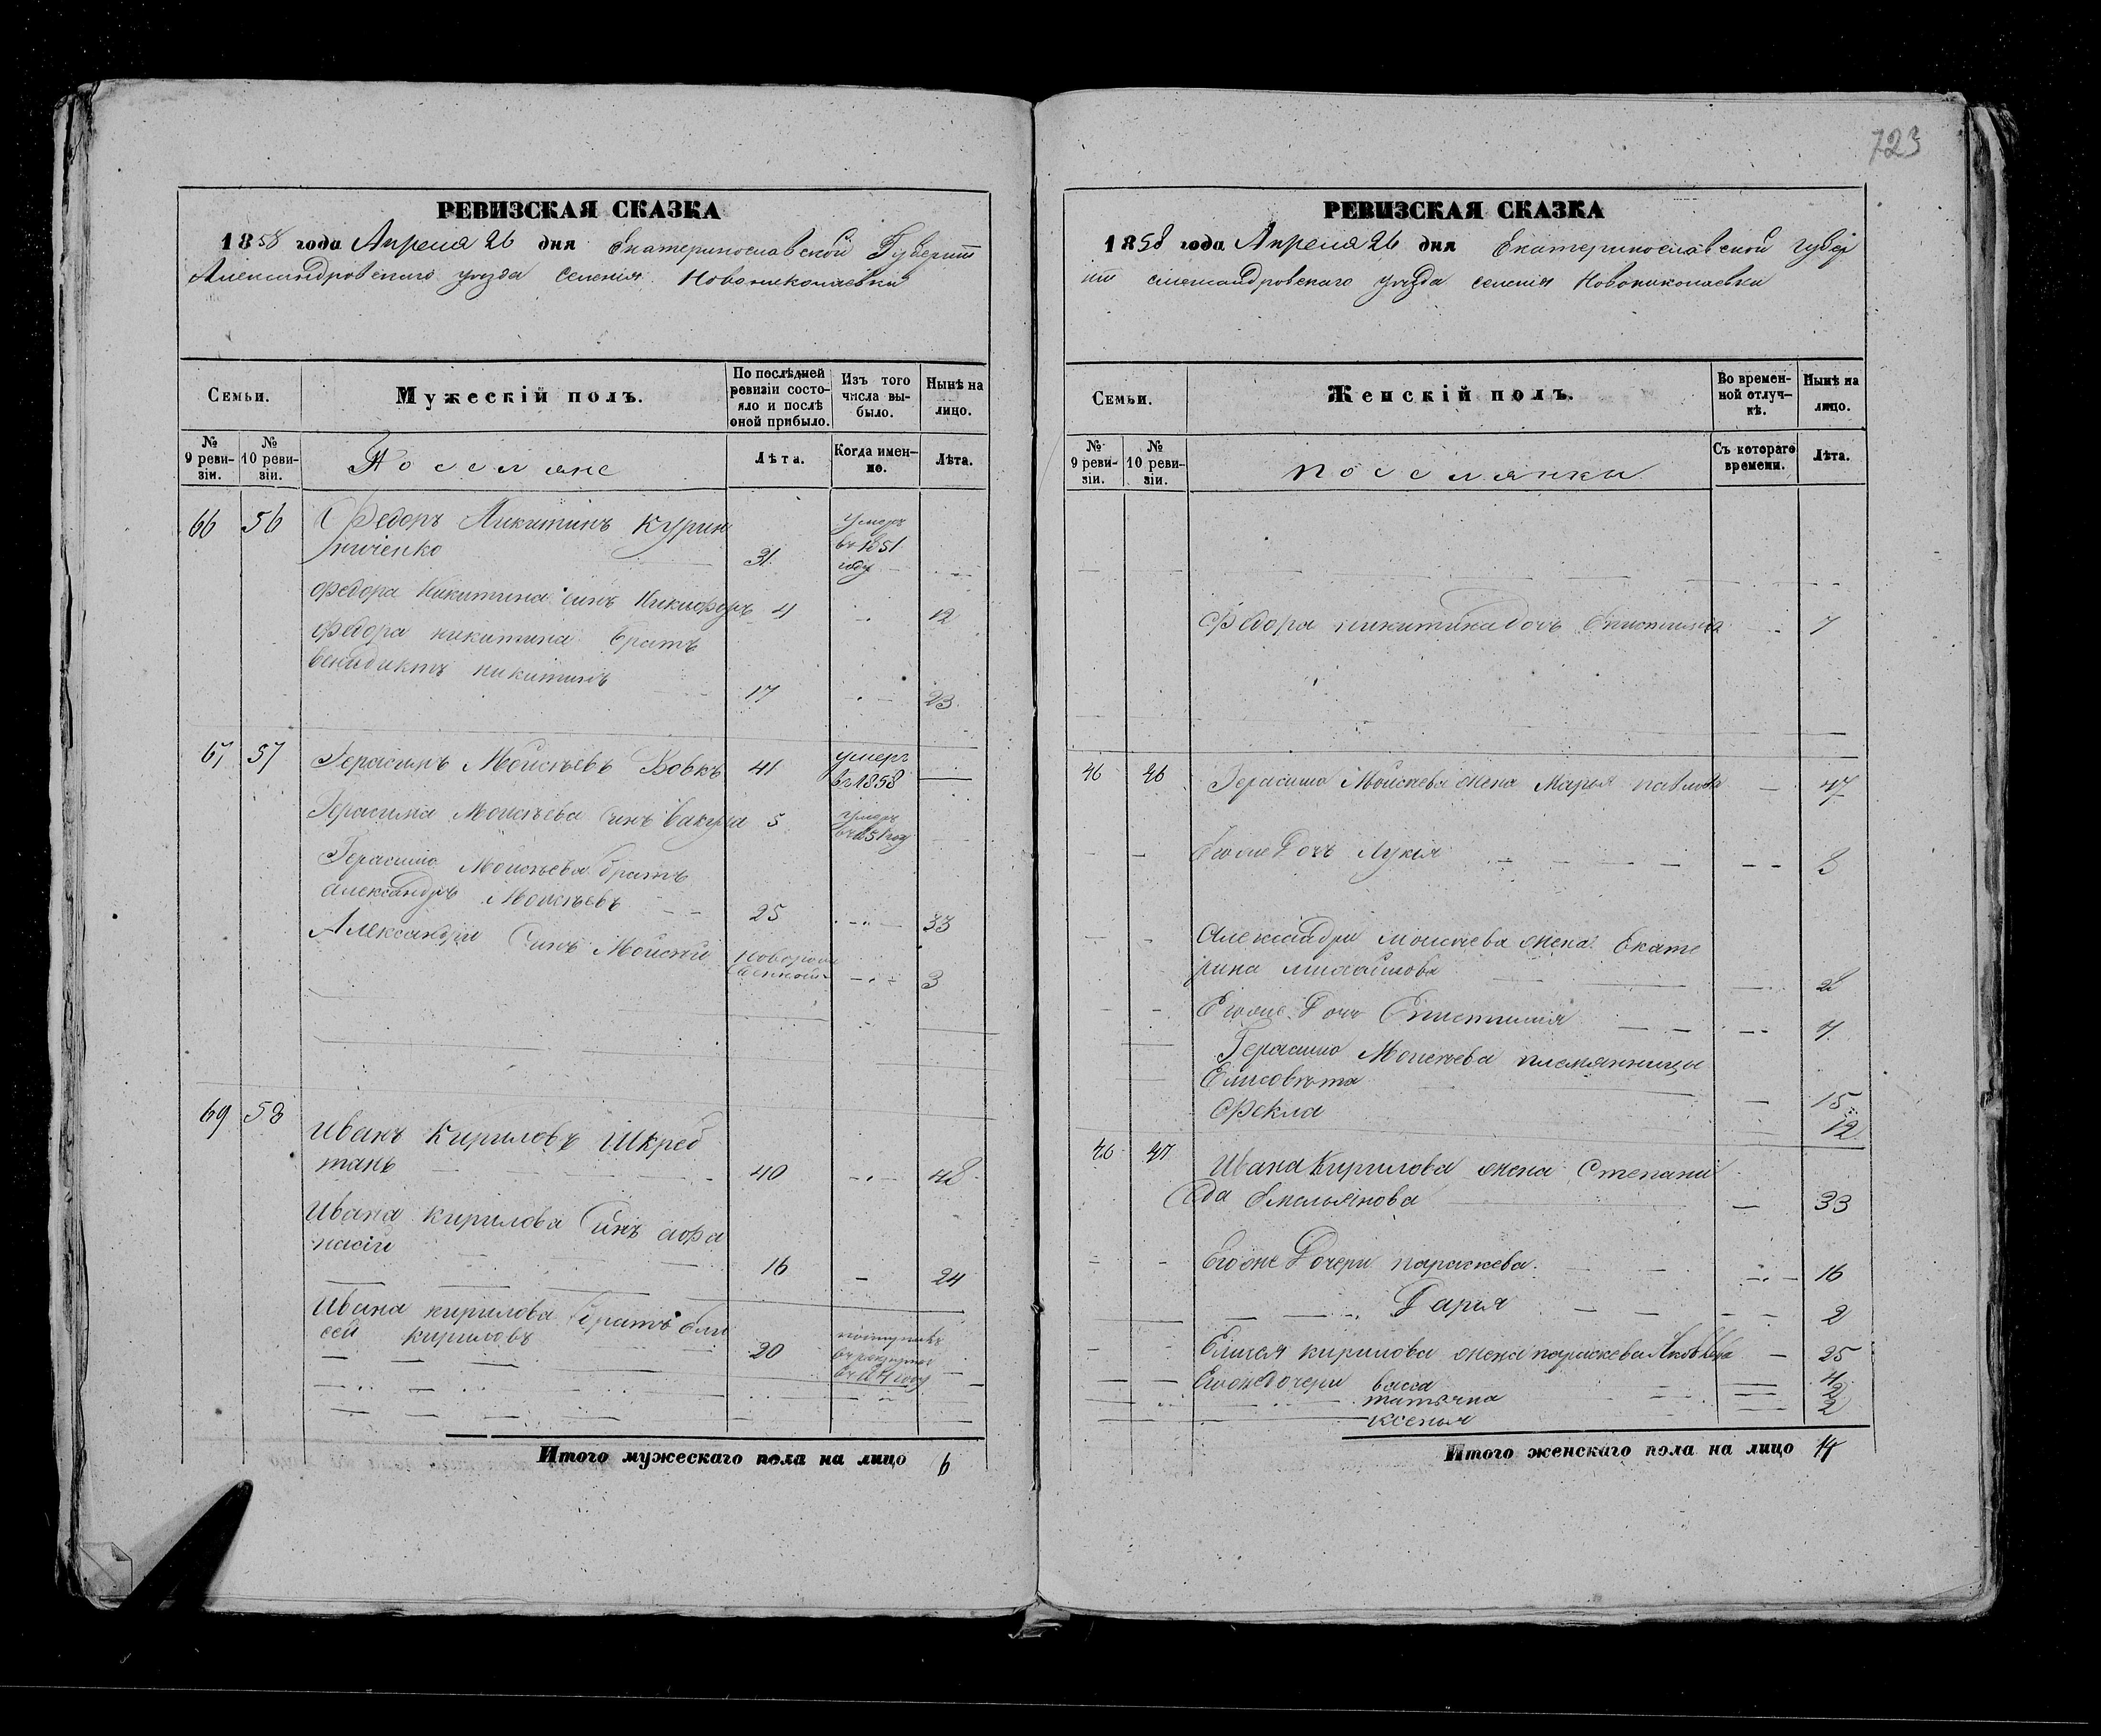 723
РЕВИЗСКАЯ СКАЗКА
1858 года Апреля 26 дня Екатеринославской Губернии
Александровскаго уезда селения Новониколаевки
Семьи.
Мужескій полъ.
По послѣдней ревизіи состо-
яло и послѣ
оной прибыло.
Изъ того
числа вы-
было.
Нынѣ на
лицо.
№
9 реви-
зіи.
№
10 реви-
зіи.
Поселяне
Лѣта.
Когда имен-
но.
Лѣта.
66 56 Федоръ Никитинъ Курин
ниченко 31. умеръ
в 1851
году
Федора Никитина сынъ Никифоръ 4 12
Федора никитина братъ
венидиктъ никитинъ 17 23
67 57 Герасимъ Моисѣевъ Вовкъ 41 умеръ
в 1858
Герасима Моисѣева сынъ Вакула 5 умеръ
Герасима Моисѣева братъ
александръ Моисѣевъ 25 33
Александра Сынъ Мойсѣй новорож
денной 3
69 58 Иванъ Кириловъ Шкреб
танъ 40 48
Ивана Кирилова Сынъ афа
насій 16 24
Ивана кирилова братъ Ели
сей кириловъ 20 поступилъ
в рекруты
Итого мужескаго пола на лицо 6
РЕВИЗСКАЯ СКАЗКА
1858 года Апреля 26 дня Екатеринославской губер
нии александровскаго уезда селения Новониколаевки
Семьи.
Женскій полъ.
Во времен-
ной отлуч-
кѣ.
Нынѣ на
лицо.
№
9 реви-
зіи.
№
10 реви-
зіи.
поселянки
Съ котораго
времени.
Лѣта.
Федора никитина дочь Епистимия 7
46 46 Герасима Мойсѣева жена Марья павлова 47
Егоже дочь Лукія 8
Александра моисѣева жена Екате
рина михайлова
Егоже Дочь Епистимия 7
Герасима Моисѣева племянницы
Елисовѣта 15
Фекла 12
46 47 Ивана Кирилова жена Степани
да Омельянова 33
Егоже Дочери параскева 16
Дарья 2
Елисея кирилова жена параскева Яковлева 25
Егоже дочери васса 4
татьяна 2
ксенья 2
Итого женскаго пола на лицо 14